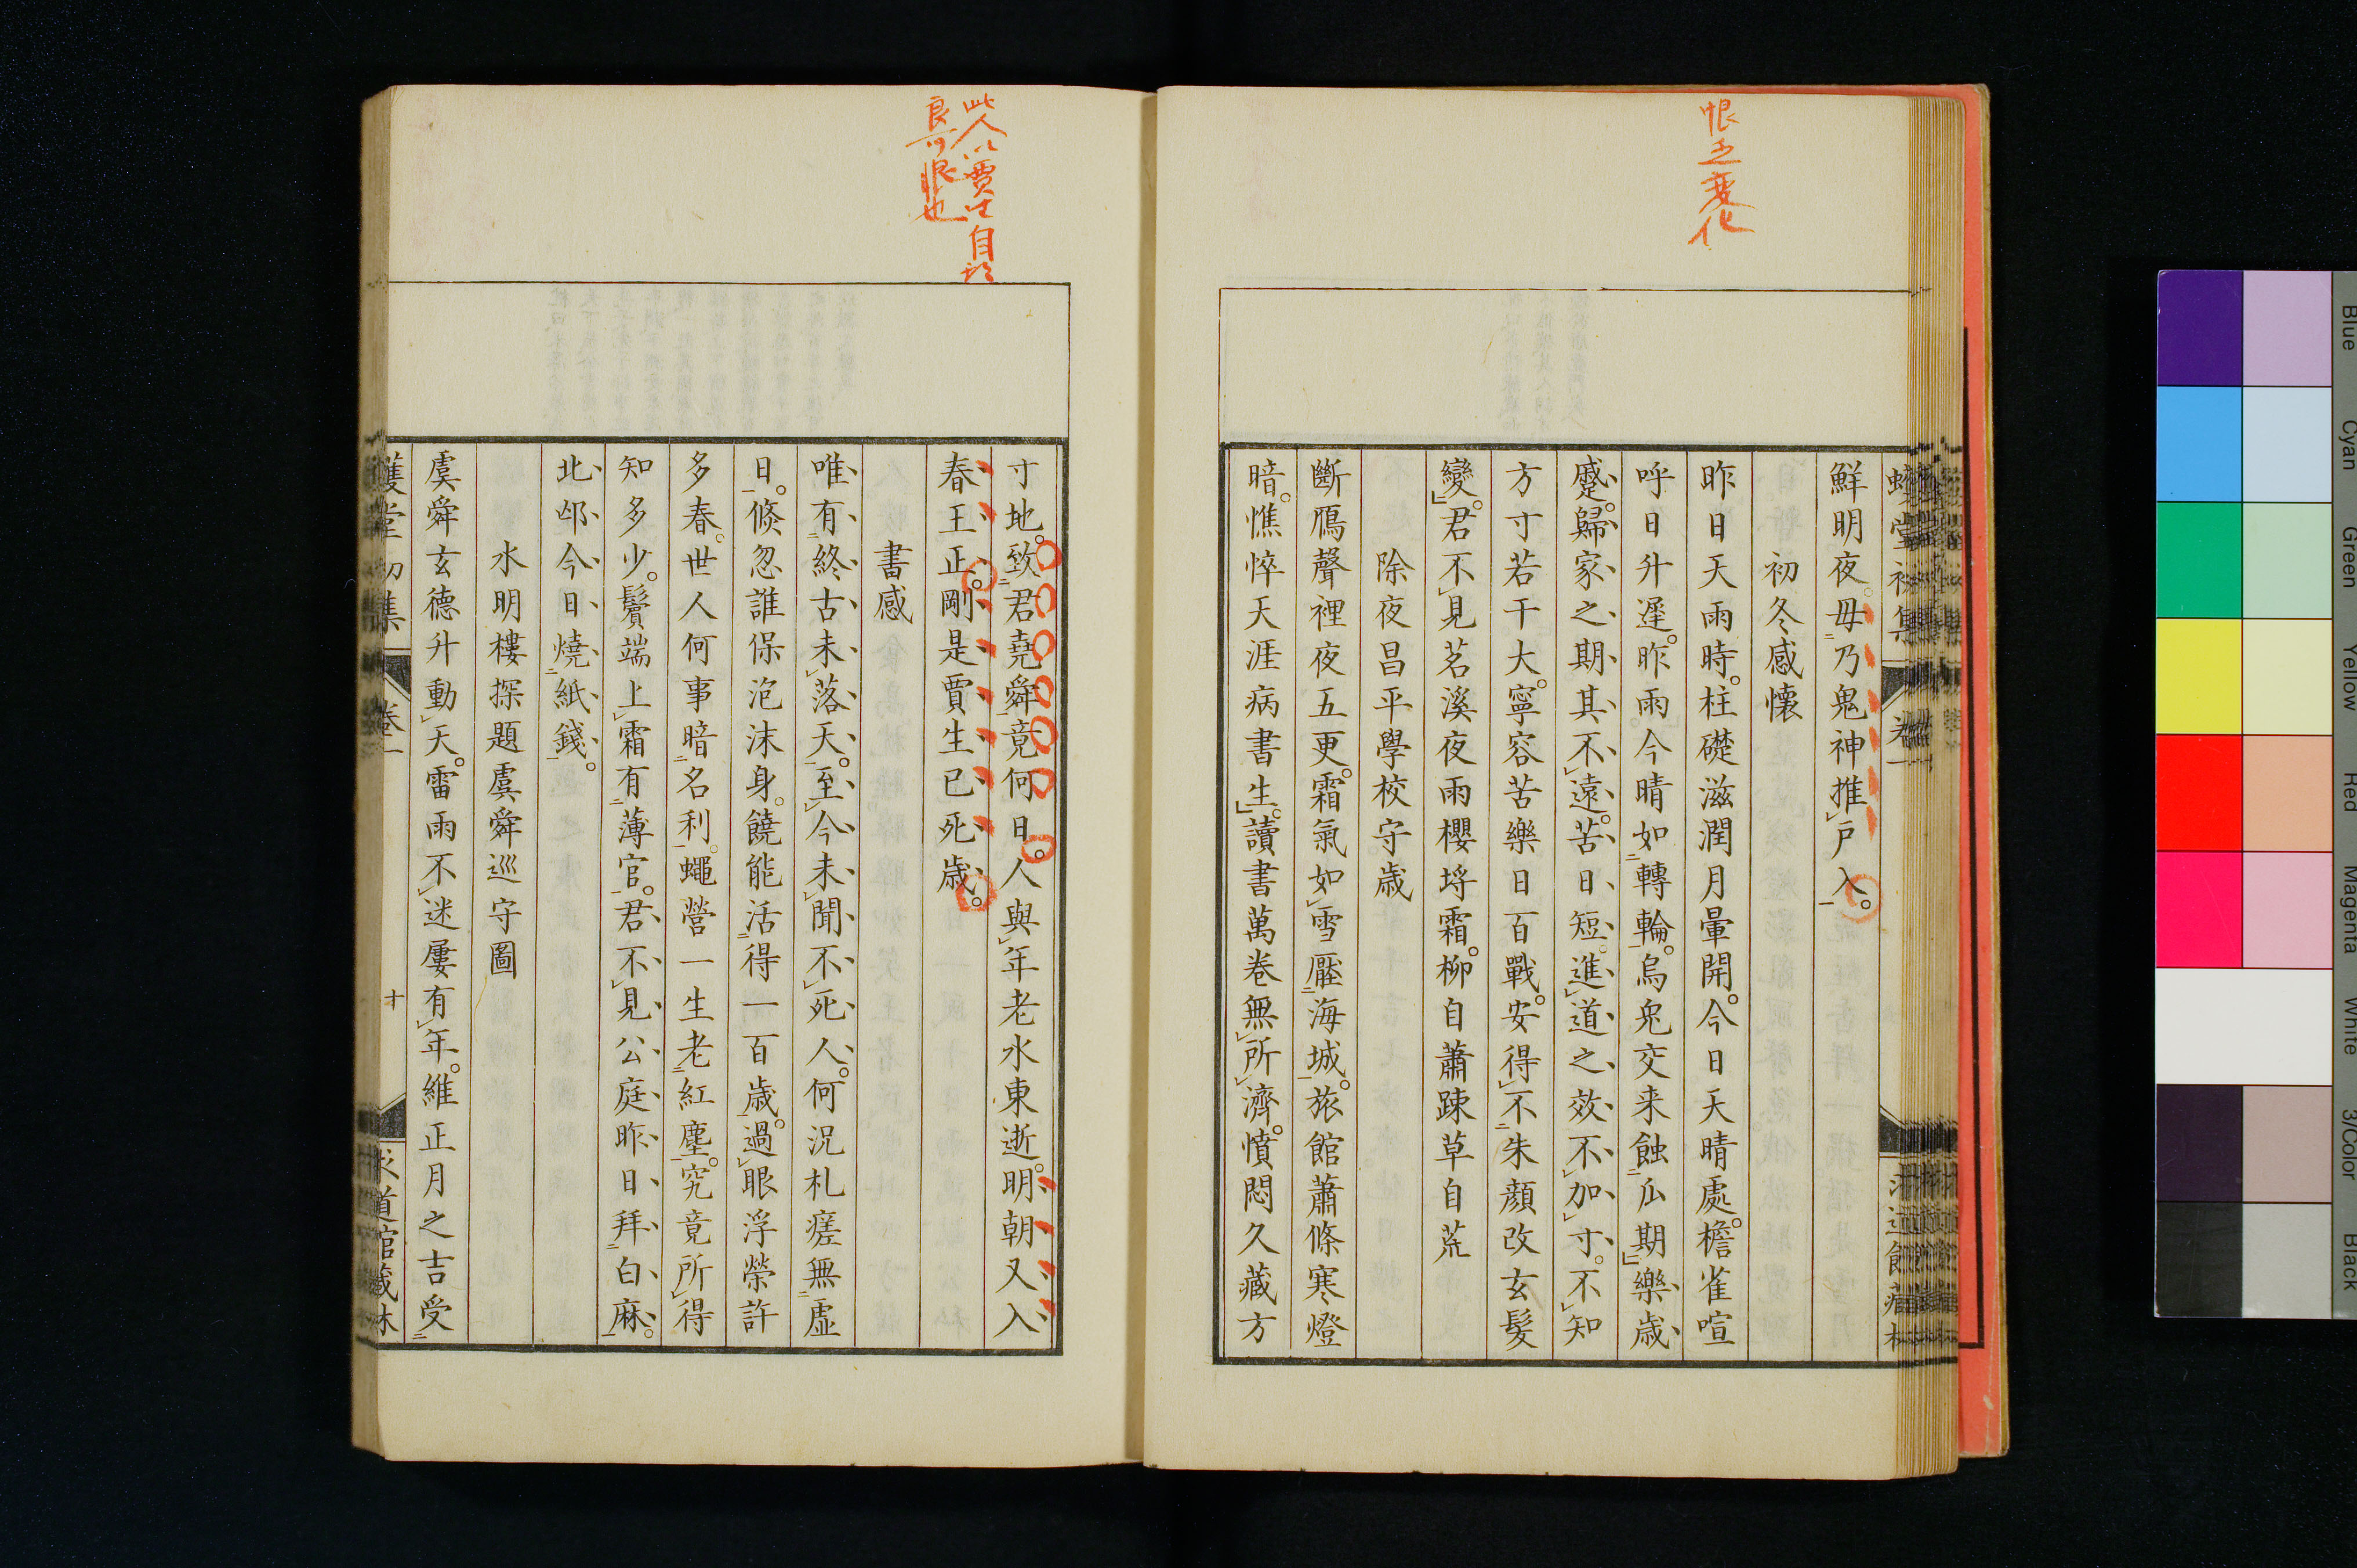 恨乏変化
鮮明夜。毋乃鬼神推戶入。
初冬感懷
昨日天雨時。柱礎滋潤月暈開。今日天晴處。檐雀喧
呼日升遲。昨雨今晴如轉輪。烏兔交来蝕瓜期。樂歲
蹙。歸家之期其不遠。苦日短。進道之效不加寸。不知
方寸若干大。寧容苦樂日百戰。安得不朱顏改玄髮
變。君不見茗溪夜雨櫻埓霜。柳自蕭踈草自荒
除夜昌平學校守歲
斷鴈聲裡夜五更。霜氣如雪壓海城。旅館蕭條寒燈
暗。憔悴天涯病書生。讀書萬卷無所濟。憤悶久藏方
此人以賈生自
良可恨也
寸地。致君堯舜竟何日。人與年老水東逝。明朝又入
春王正。剛是賈生已死歲。
書感
唯有終古未落天。至今未聞不死人。何況札瘥無虛
日。倏忽誰保泡沫身。饒能活得一百歲。過眼浮榮許
多春。世人何事暗名利。蠅營一生老紅塵。究竟所得
知多少。鬢端上霜有薄官。君不見公庭昨日拜白麻。
北邙今日燒紙錢。
水明樓探題虞舜巡守圖
虞舜玄德升動天。雷雨不迷屢有年。維正月之吉受
卷一
十